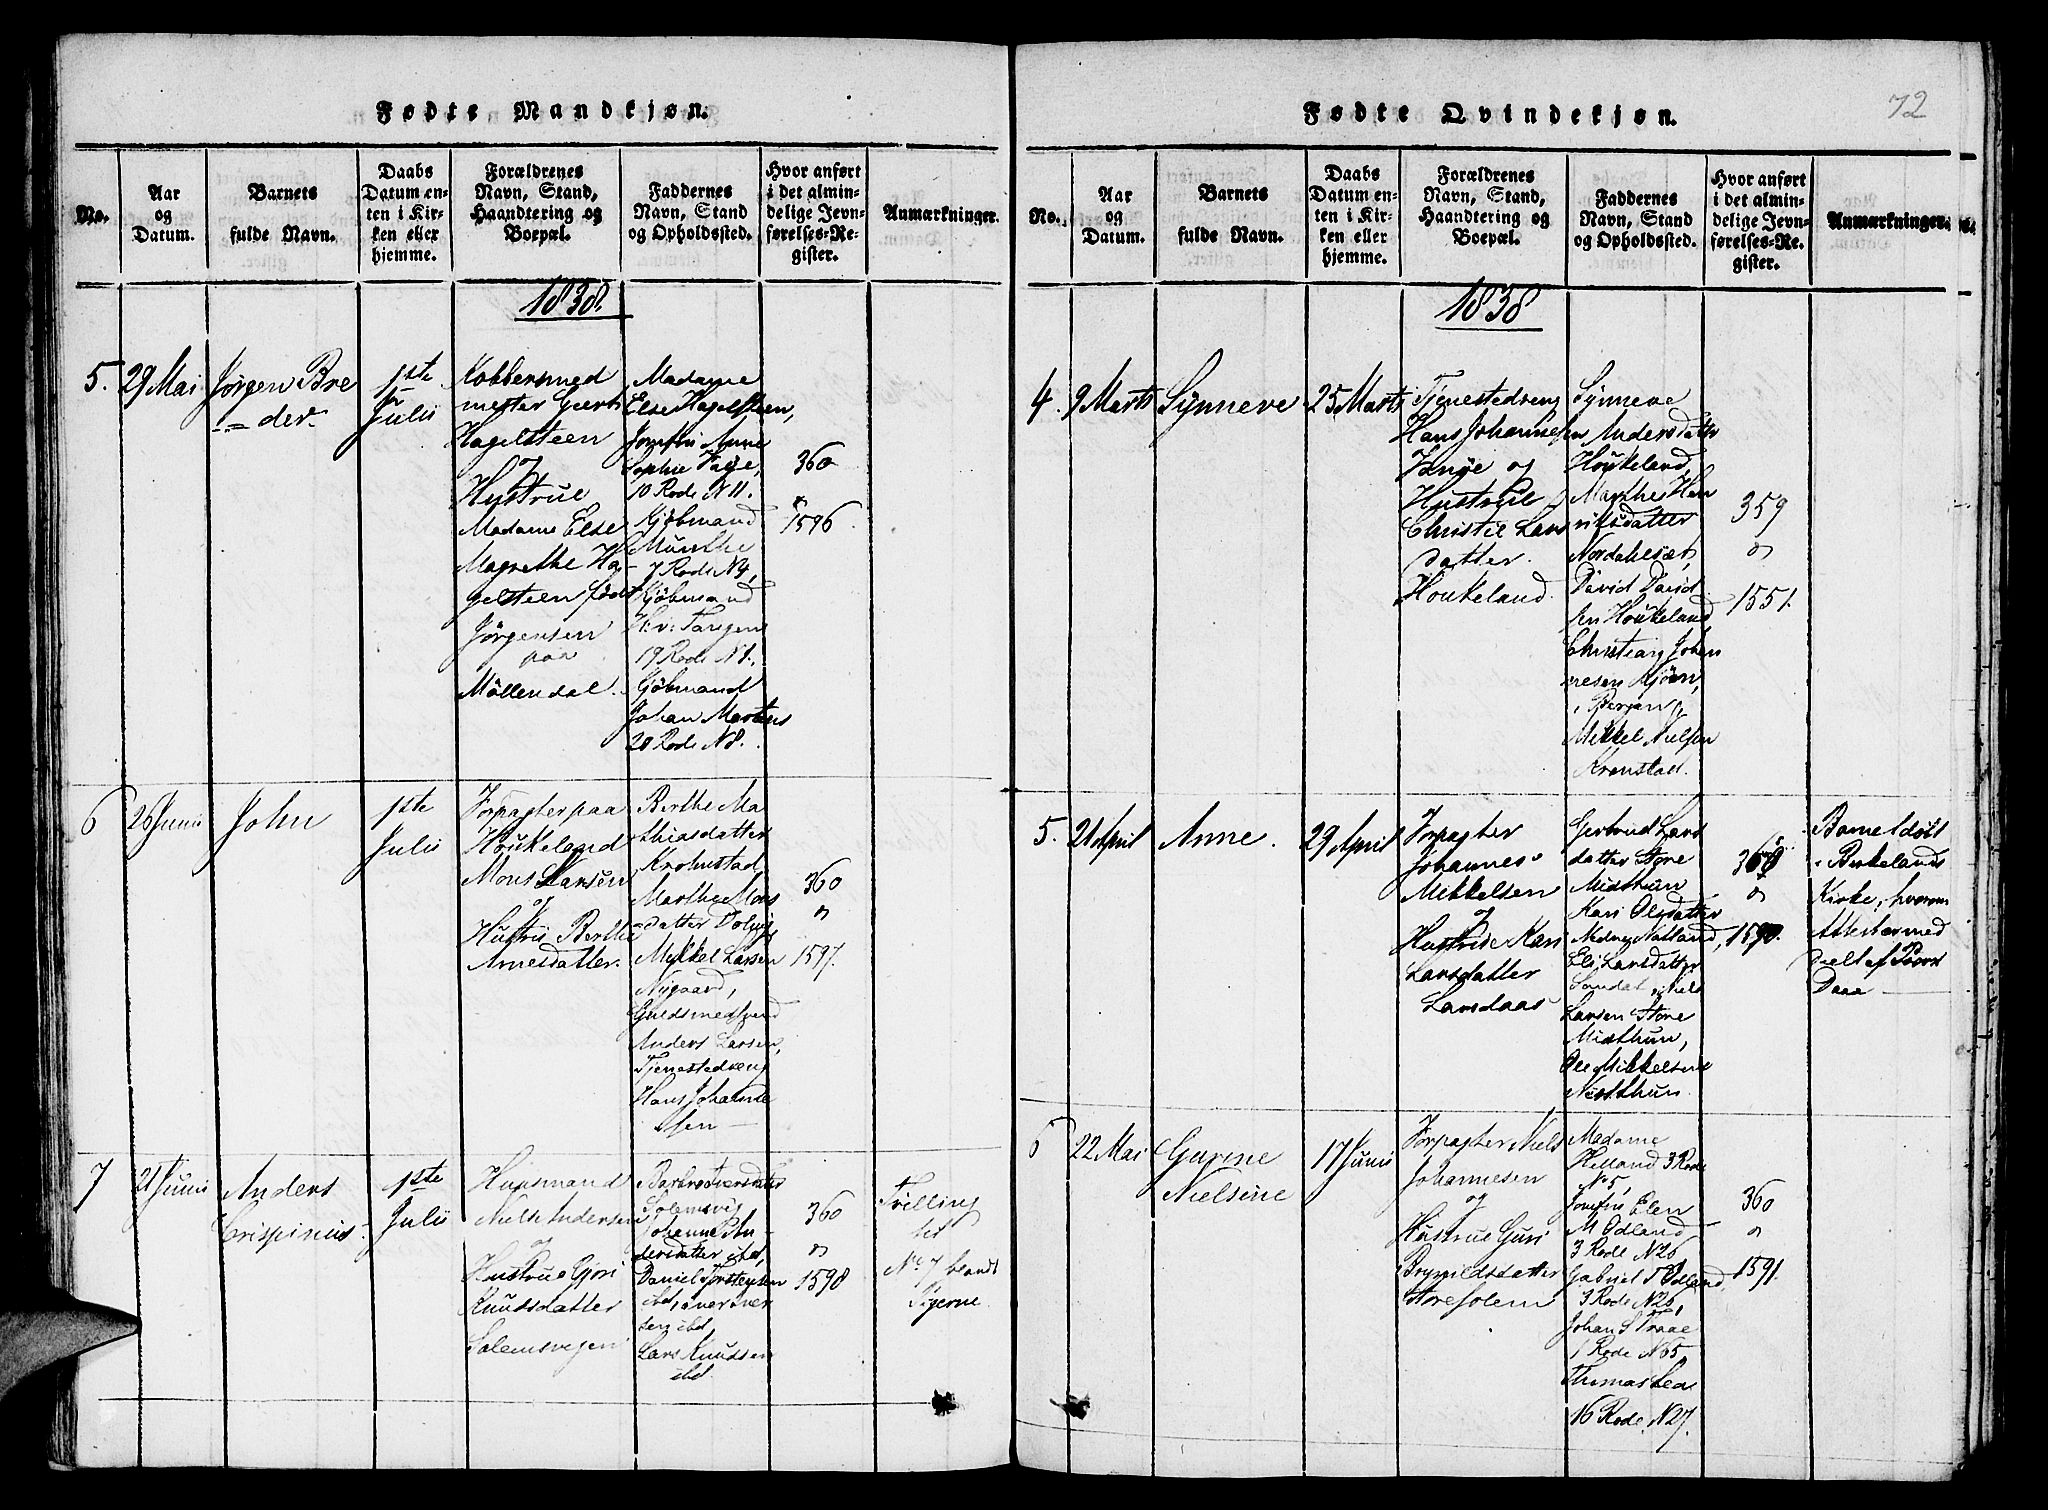 Fødte Mandkjøn.
No.
Aar
og
Datum.
Barnets
fulde Navn.
Daabs
Datum en-
ten i Kir-
ken eller
hjemme.
Forældrenes
Navn, Stand,
Haandtering og
Boepæl.
Faddernes
Navn, Stand
og Opholdssted.
Hvor anført
i det almin-
delige Jevn-
førelses-Re-
gister.
Anmærkninger.
1838.
5.
29 Mai
Jørgen Bre
der
1ste
Julii
Kobbersmed
mester Geert
Hagelsteen
og
Hustrue
Madame Else
Magrethe Ha-
gelsteen født
Jörgensen
paa
Möllendal.
Madame
Else Hagelsteen,
Jomfru Anne
Sophie Faye,
10 Rode N 11.
Kjöbmand
Munthe
7 Rode N 4,
Kjöbmand
H: v: Tangen
19 Rode N 8.
Kjöbmand
Johan Martens
20 Rode N 8.
360
og
1596
6
26 Junii
John
1ste
Julii
Forpagter paa
Houkeland
Mons Larsen
og
Hustrue Berthe
Arnesdatter.
Berthe Ma
thiasdatter
Krohnstad
Marthe Mons
datter
Mikkel Larsen
Nygaard,
Guldsmedsvend
Anders Larsen,
Tjenestedreng
Hans Johanne
sen
360
og
1597.
7
21 Junii
Anders
Crispinius
1ste
Julii
Huusmand
Niels Andersen
og
Hustrue Gjøri
Knudsdatter
Solemsvegen
Barbro Iversdatter
Solemsvig
Johanne An
dersdatter ibd,
Daniel Torstensen
ibd, Iver Iver
sen ibd,
Lars Knudsen
ibd
360
og
1598
Trilling
see
No 7 blandt
Pigerne
Fødte Qvindekjøn.
72
No.
Aar
og
Datum.
Barnets
fulde Navn.
Daabs
Datum en-
ten i Kir-
ken eller
hjemme.
Forældrenes
Navn, Stand,
Haandtering og
Boepæl.
Faddernes
Navn, Stand
og Opholdssted.
Hvor anført
i det almin-
delige Jevn-
førelses-Re-
gister.
Anmærkninger.
1838
4.
9 Marts
Synneve
25 Marts
Tjenestedreng
Hans Johannesen
og
Hustrue
Christie Lars
datter.
Houkeland.
Synneve
Andersdatter
Houkeland,
Marthe Hen
riksdatter
David David
sen Houkeland
Christian Johan
nesen
i Bergen,
Mikkel Nielsen
Kronstad.
359
og
1551.
5.
21 April
Anne.
29 April
Forpagter
Johannes
Mikkelsen
og
Hustrue Kari
Larsdatter
Landaas
Gertrud Lars
datter Store
Midthun
Kari Olsdatter
Nedre Natland,
Eli Larsdatter
Sandal, Niels
Larsen Store
Midthun,
Ole Mikkelsen
Midthun
360
og
1590.
Barnet døbt
i Birkelands
Kirke, hvorom
Attest er med
deelt af Provst
Daae
6
22 Mai
Gurine
Nielsine
17 Junii
Forpagter Niels
Johannesen
og
Hustrue Guri
Brynildsdatter
Store Solem
Madame
Helland 3 Rode
No 5,
Jomfru Elen
M Odland
3 Rode N 26
Gabriel T Odland,
3 Rode N 26,
Johan S Traae
1 Rode N 65
Thomas Lea
16 Rode. N 27.
360
og
1591.